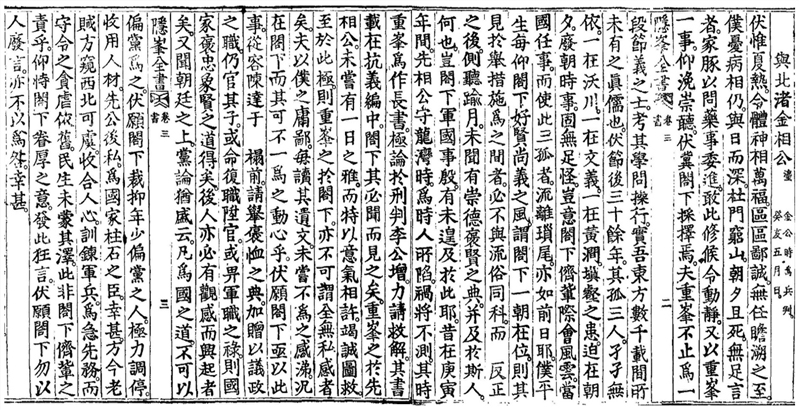 與北渚金相公 鎏 金公時爲兵判 癸亥五月日
伏惟夏熱令體神相萬福區區鄙誠無任瞻溯之至
僕憂病相仍與日而深杜門窮山朝夕且死無足言
者家豚以問藥事委進敢此修候令動靜又以重峯
一事仰浼崇聽伏冀閤下採擇焉夫重峯不止爲一
隱峯全書 卷三 書 二
段節義之士考其學問操行實吾東方數千載間所
未有之眞儒也伏節後三十餘年其孤三人孑孑無
依一在沃川一在文義一在黃澗塡壑之患迫在朝
夕廢朝時事固無足怪豈意閤下儕輩際會風雲當
國任事而使此三孤者流離瑣尾亦如前日耶僕平
生每仰閤下好賢尚義之風謂閤下一朝在位則其
見於擧措施爲之間者必不與流俗同科而 反正
之後側聽踰月未聞有崇德褒賢之典幷及於斯人
何也豈閤下軍國事殷有未遑及於此耶昔在庚寅
年間先相公守龍灣時爲時人所陷禍將不測其時
重峯爲作長書極論於刑判李公增力請救解其書
載在抗義編中閤下其必聞而見之矣重峯之於先
相公未嘗有一日之雅而特以意氣相許竭誠圖救
至於此極則重峯之於閤下亦不可謂全無私感者
矣夫以僕之庸鄙每讀其遺文未嘗不爲之感涕況
在閤下而其可不一爲之動心乎伏願閤下亟以此
事從容陳達于 榻前請擧褒恤之典加贈以議政
之職仍官其子或命復職陞官或畀軍職之祿則國
家褒忠象賢之道得矣後人亦必有觀感而興起者
矣又聞朝廷之上黨論猶盛云凡爲國之道不可以
隱峯全書 卷三 書 三
偏黨爲之伏願閤下裁抑年少偏黨之人極力調停
收用人材先公後私爲國家柱石之臣幸甚方今老
賊方窺西北可虞收合人心訓鍊軍兵爲急先務而
守令之貪虐依舊民生未蒙其澤此非閤下儕輩之
責乎仰恃閤下眷厚之意發此狂言伏願閤下勿以
人廢言亦不以爲咎幸甚